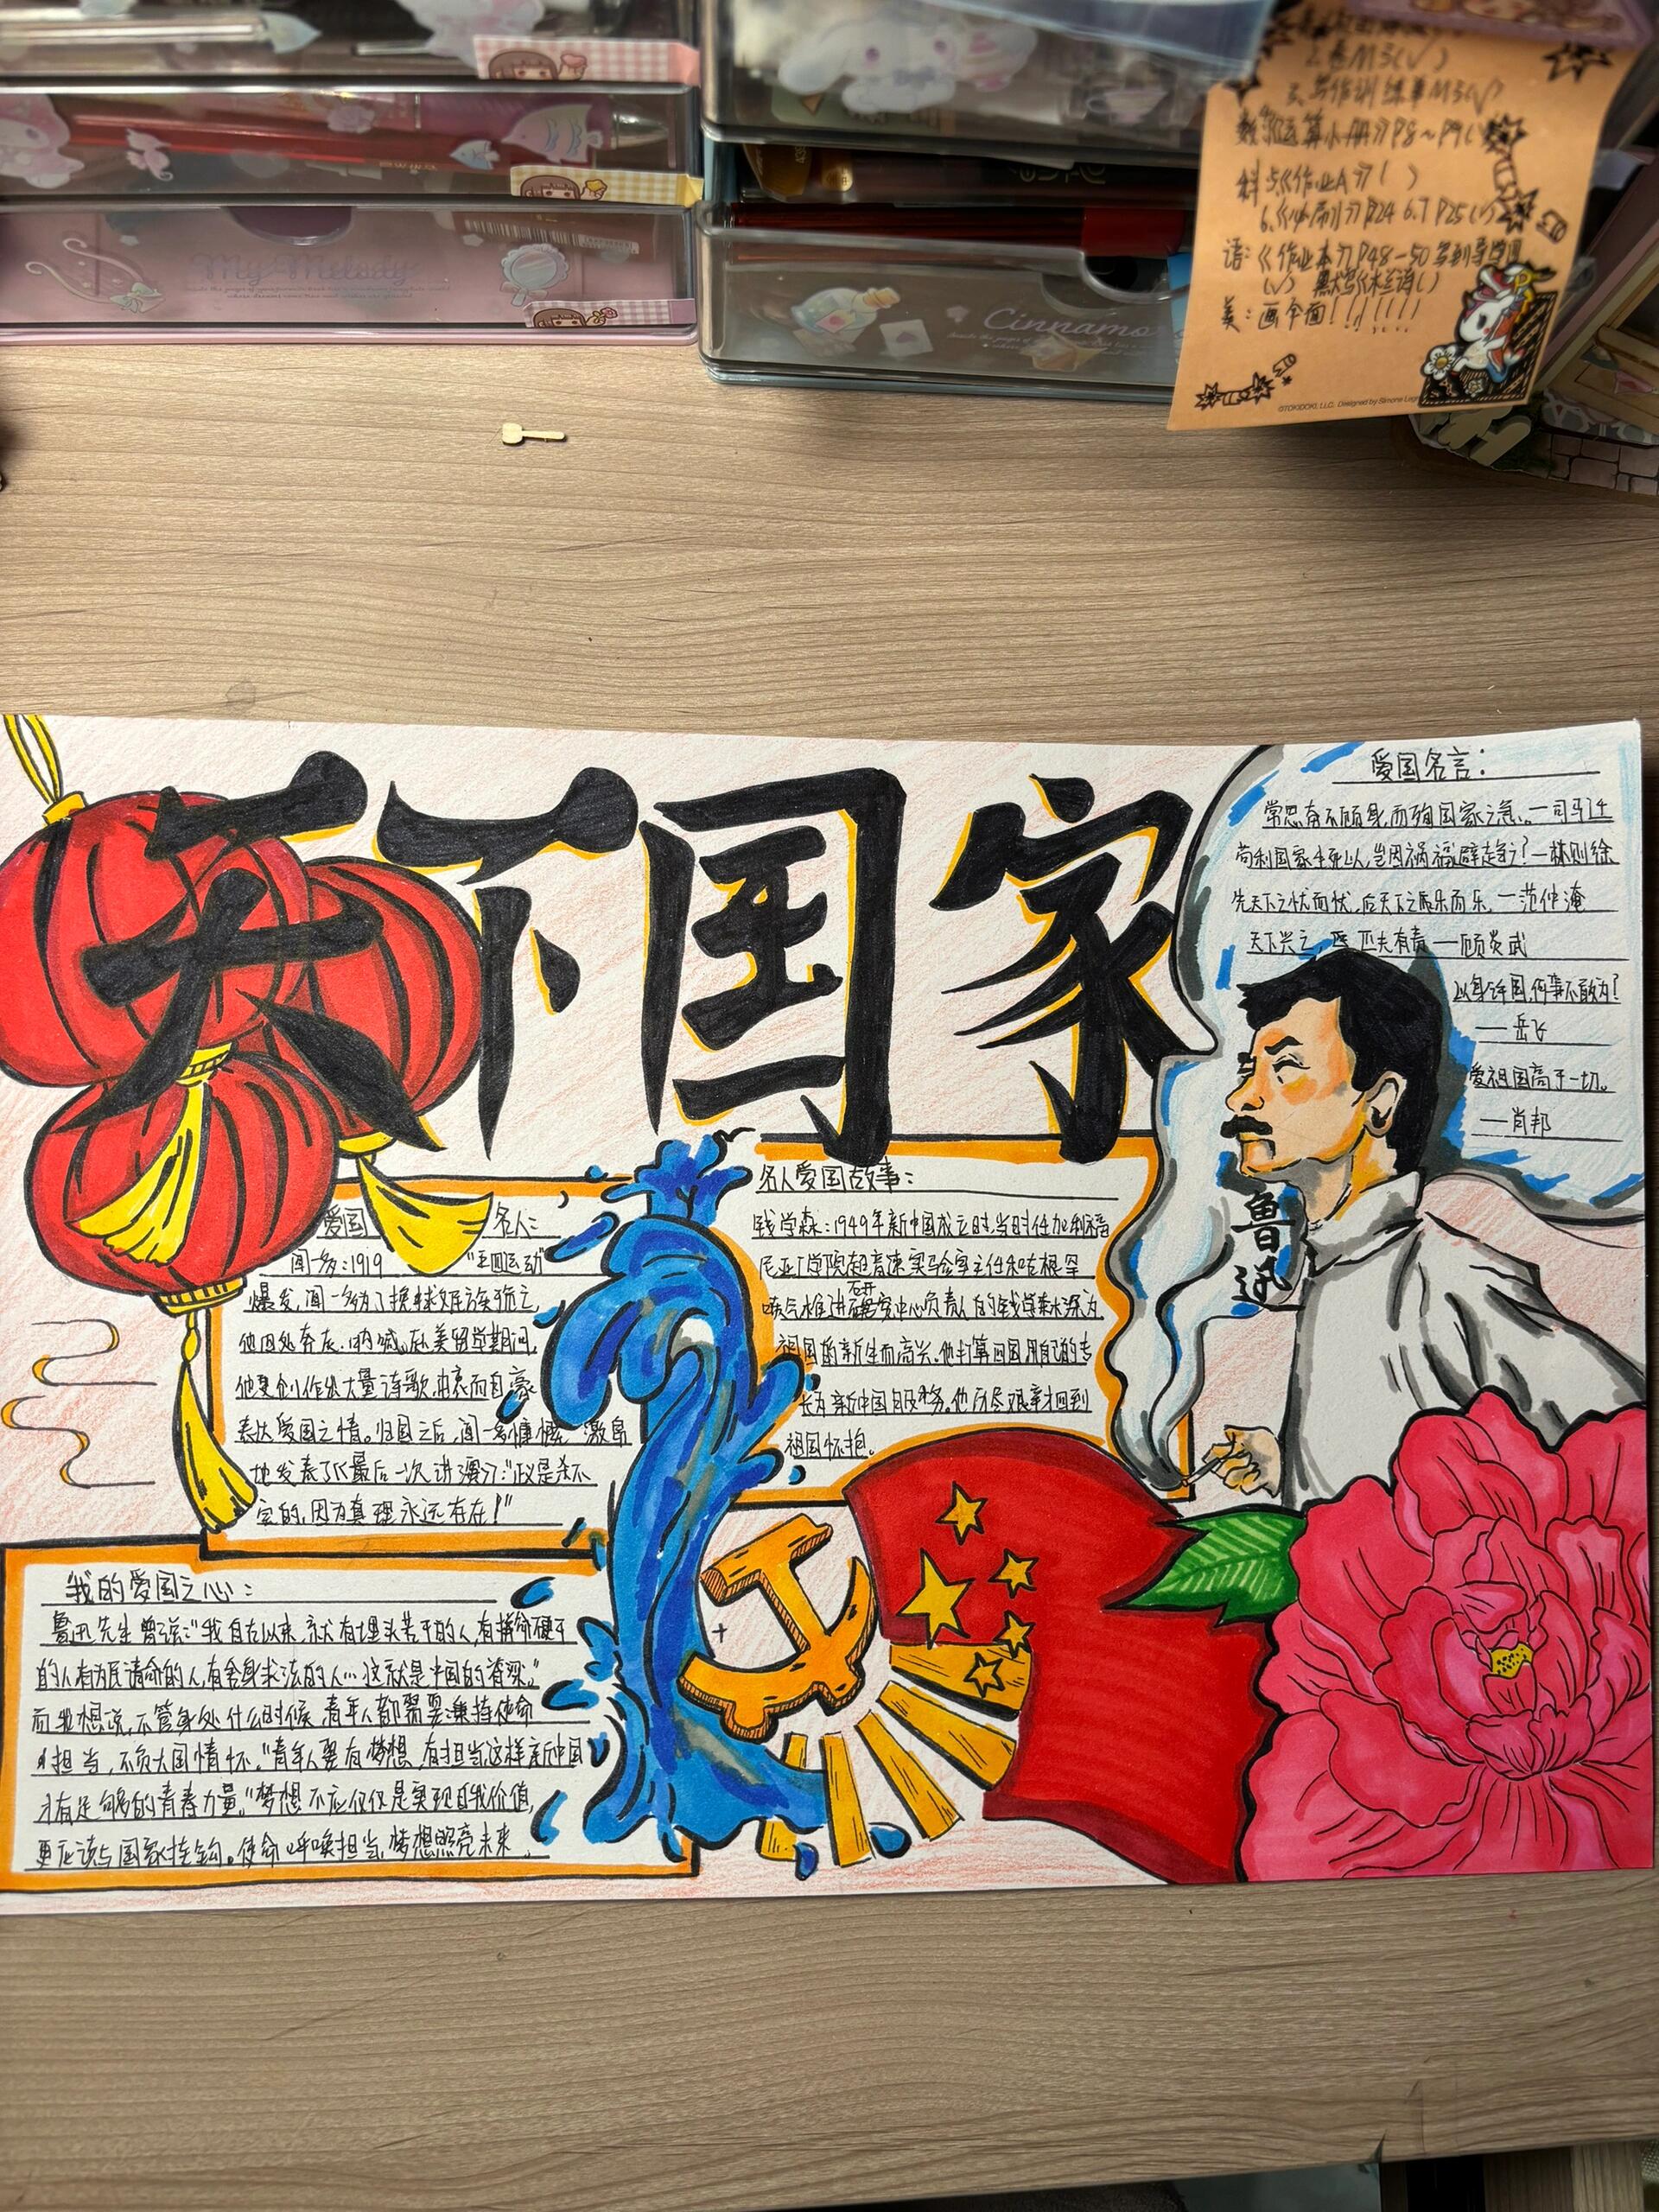 2.卷M3(√)
3.写作训练单M3(√)
数:《运算小册》P8~P9(
科:5.《作业A》( )
6.《必刷》P24 6.7 P25(√)
语:《作业本》P48-50写到导学图
(√) 默写《木兰诗》( )
美:画伞面!!!!!!!
©TOKIDOKI, LLC. Designed by Simone Leg
My Melody
Cinnamo
天下国家
爱国名言:
常思奋不顾身,而殉国家之急。—司马迁
苟利国家生死以,岂因祸福避趋之?—林则徐
先天下之忧而忧,后天下之乐而乐。—范仲淹
天下兴亡,匹夫有责——顾炎武
以身许国,何事不敢为?
——岳飞
爱祖国高于一切。
——肖邦
鲁迅
名人爱国故事:
钱学森:1949年新中国成立时,当时任加利福
尼亚工学院超音速实验室主任和古根罕
喷气推进研究中心负责人的钱学森深为
祖国的新生而高兴。他打算回国用自己的专
长为新中国服务。他历尽艰辛才回到
祖国怀抱。
爱国名人:
闻一多:1919 "五四运动"
爆发,闻一多为了挽救民族危亡,
他四处奔走、呐喊。在美留学期间,
他更创作出大量诗歌,由衷而自豪
表达爱国之情。归国之后,闻一多慷慨激昂
地发表了《最后一次讲演》:"正义是杀不
完的,因为真理永远存在!"
我的爱国之心:
鲁迅先生曾说:"我自古以来,就有埋头苦干的人,有拼命硬干
的人有为民请命的人,有舍身求法的人…这就是中国的脊梁。"
而我想说,不管身处什么时候,青年人都需要秉持使命
担当,不负大国情怀。"青年人要有梦想,有担当这样新中国
才有足够的青春力量。"梦想不应仅仅是实现自我价值,
更应该与国家挂钩。使命呼唤担当,梦想照亮未来。